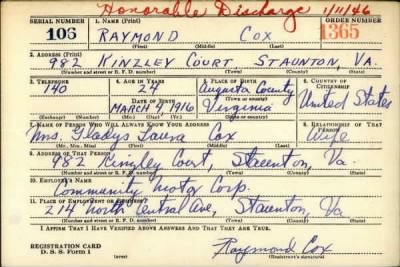 Honorable Discharge 1/11/46
SERIAL NUMBER 1. NAME (Print) ORDER NUMBER
106 RAYMOND COX 1365
(First) (Middle) (Last)
2. ADDRESS (Print)
982 KINZLEY COURT, STAUNTON, VA.
(Number and street or R. F. D. number) (Town) (County) (State)
3. TELEPHONE 4. AGE IN YEARS 5. PLACE OF BIRTH 6. COUNTRY OF CITIZENSHIP
140 24 Augusta County United States
DATE OF BIRTH
MARCH 4 1916 Virginia
(Exchange) (Number) (Mo.) (Day) (Yr.) (State or country)
7. NAME OF PERSON WHO WILL ALWAYS KNOW YOUR ADDRESS 8. RELATIONSHIP OF THAT PERSON
Mrs. Gladys Laura Cox Wife
(Mr., Mrs., Miss) (First) (Middle) (Last)
9. ADDRESS OF THAT PERSON
982 Kinzley Court, Staunton, Va.
(Number and street or R. F. D. number) (Town) (County) (State)
10. EMPLOYER'S NAME
Community Motor Corp.
11. PLACE OF EMPLOYMENT OR BUSINESS
214 North Central Ave, Staunton, Va
(Number and street or R. F. D. number) (Town) (County) (State)
I AFFIRM THAT I HAVE VERIFIED ABOVE ANSWERS AND THAT THEY ARE TRUE.
REGISTRATION CARD
D. S. S. Form 1 (over) Raymond Cox
(Registrant's signature)